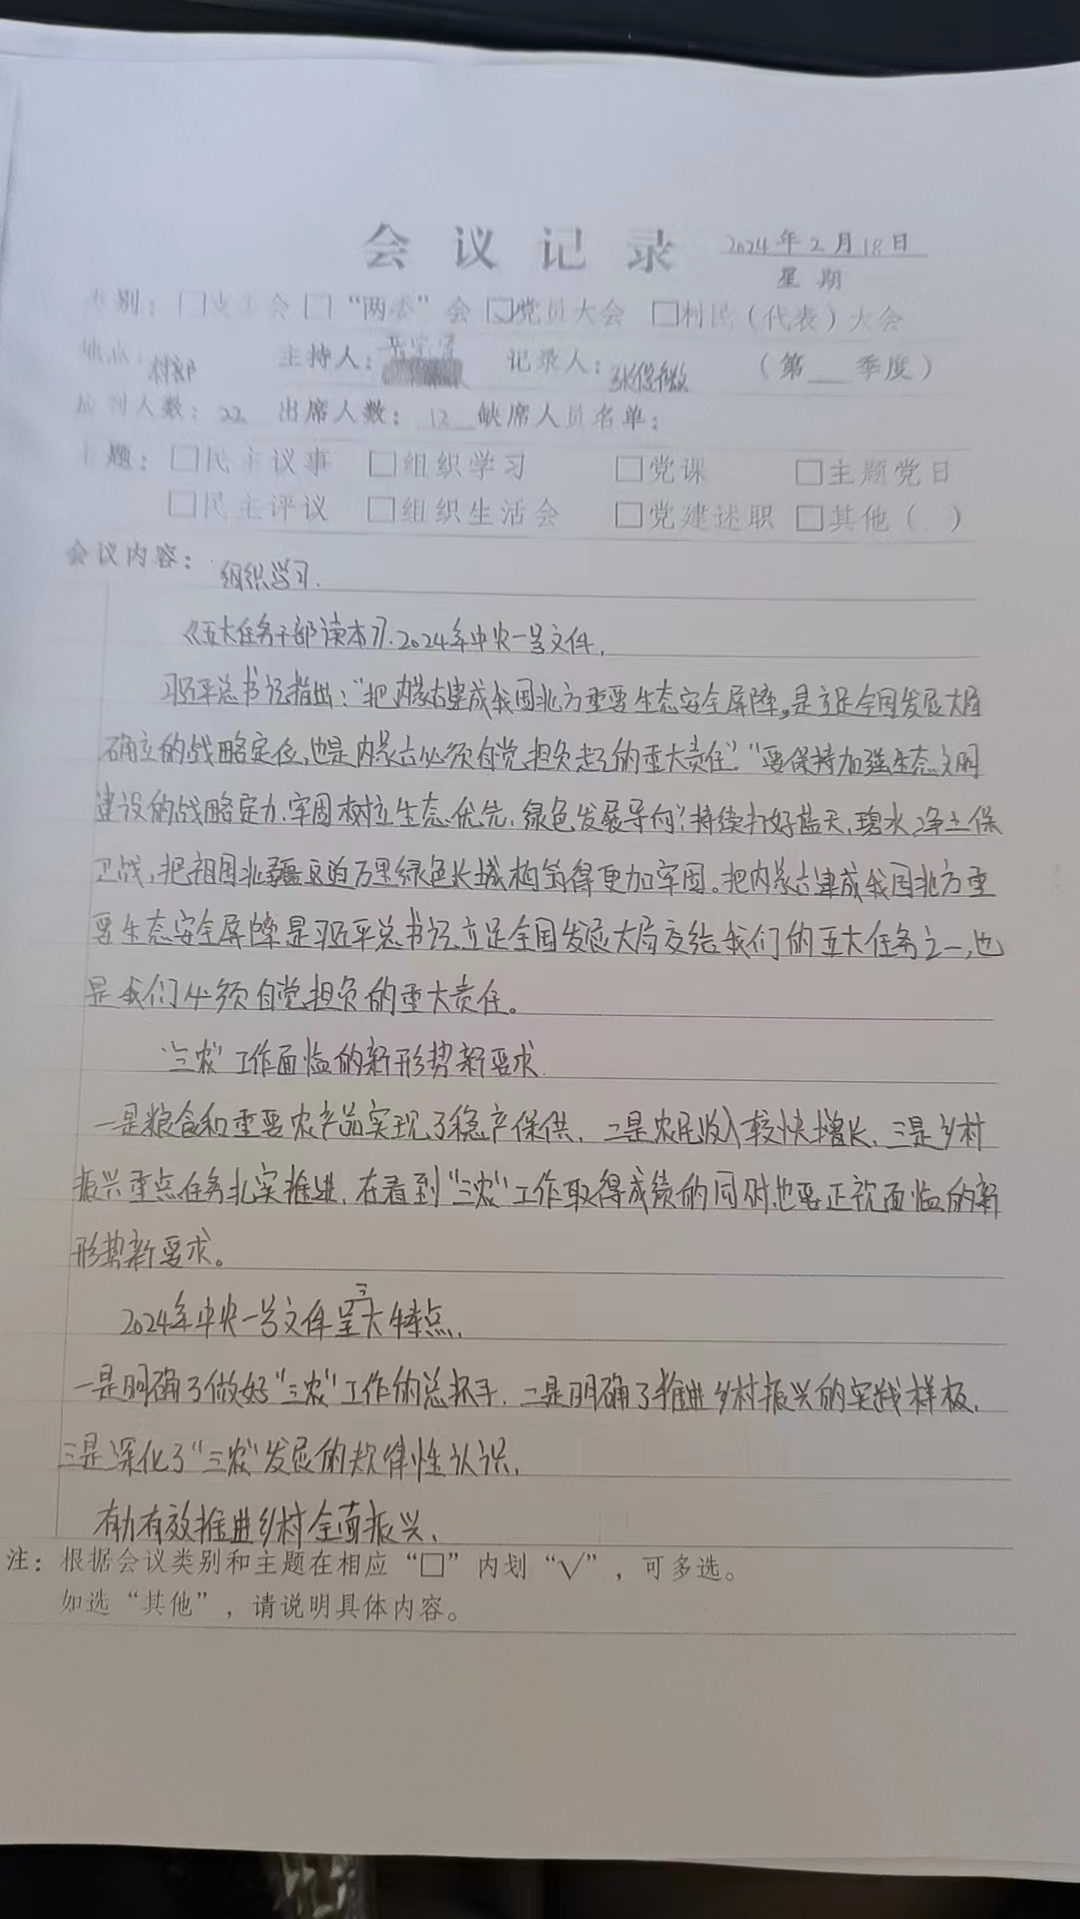 会议记录 2024年2月18日
星期
类别：□支委会 □“两委”会 ☑党员大会 □村民（代表）大会
地点：村部 主持人： 记录人： （第 季度）
应到人数：22 出席人数：12 缺席人员名单：
主题：□民主议事 □组织学习 □党课 □主题党日
□民主评议 □组织生活会 □党建述职 □其他（ ）
会议内容：组织学习.
《五大任务干部读本》.2024年中央一号文件,
习近平总书记指出：“把内蒙古建成我国北方重要生态安全屏障，是立足全国发展大局
确立的战略定位，也是内蒙古必须自觉担负起的重大责任”“要保持加强生态文明
建设的战略定力.牢固树立生态优先，绿色发展导向”，持续打好蓝天、碧水、净土保
卫战，把祖国北疆这道万里绿色长城构筑得更加牢固。把内蒙古建成我国北方重
要生态安全屏障是习近平总书记立足全国发展大局交给我们的五大任务之一，也
是我们必须自觉担负的重大责任。
“三农”工作面临的新形势新要求.
一是粮食和重要农产品实现了稳产保供，二是农民收入较快增长，三是乡村
振兴重点任务扎实推进，在看到“三农”工作取得成绩的同时，也要正视面临的新
形势新要求。
2024年中央一号文件呈三大特点，
一是明确了做好“三农”工作的总抓手，二是明确了推进乡村振兴的实践样板，
三是深化了“三农”发展的规律性认识，
有力有效推进乡村全面振兴，
注：根据会议类别和主题在相应“□”内划“√”，可多选。
如选“其他”，请说明具体内容。